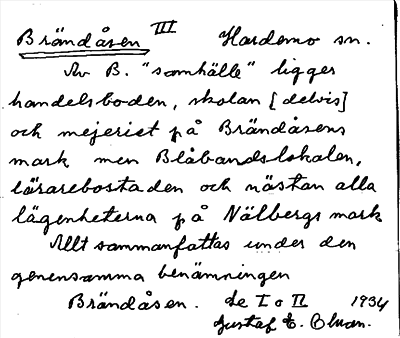 Brändåsen III Hardemo sn.
Av B. "samhälle" ligger
handelsboden, skolan [delvis]
och mejeriet på Brändåsens
mark men Blåbandslokalen,
lärarebostaden och nästan alla
lägenheterna på Nälbergs mark
Allt sammanfattas under den
gemensamma benämningen
Brändåsen. Se I o II 1934
Gustaf E. Olvan.